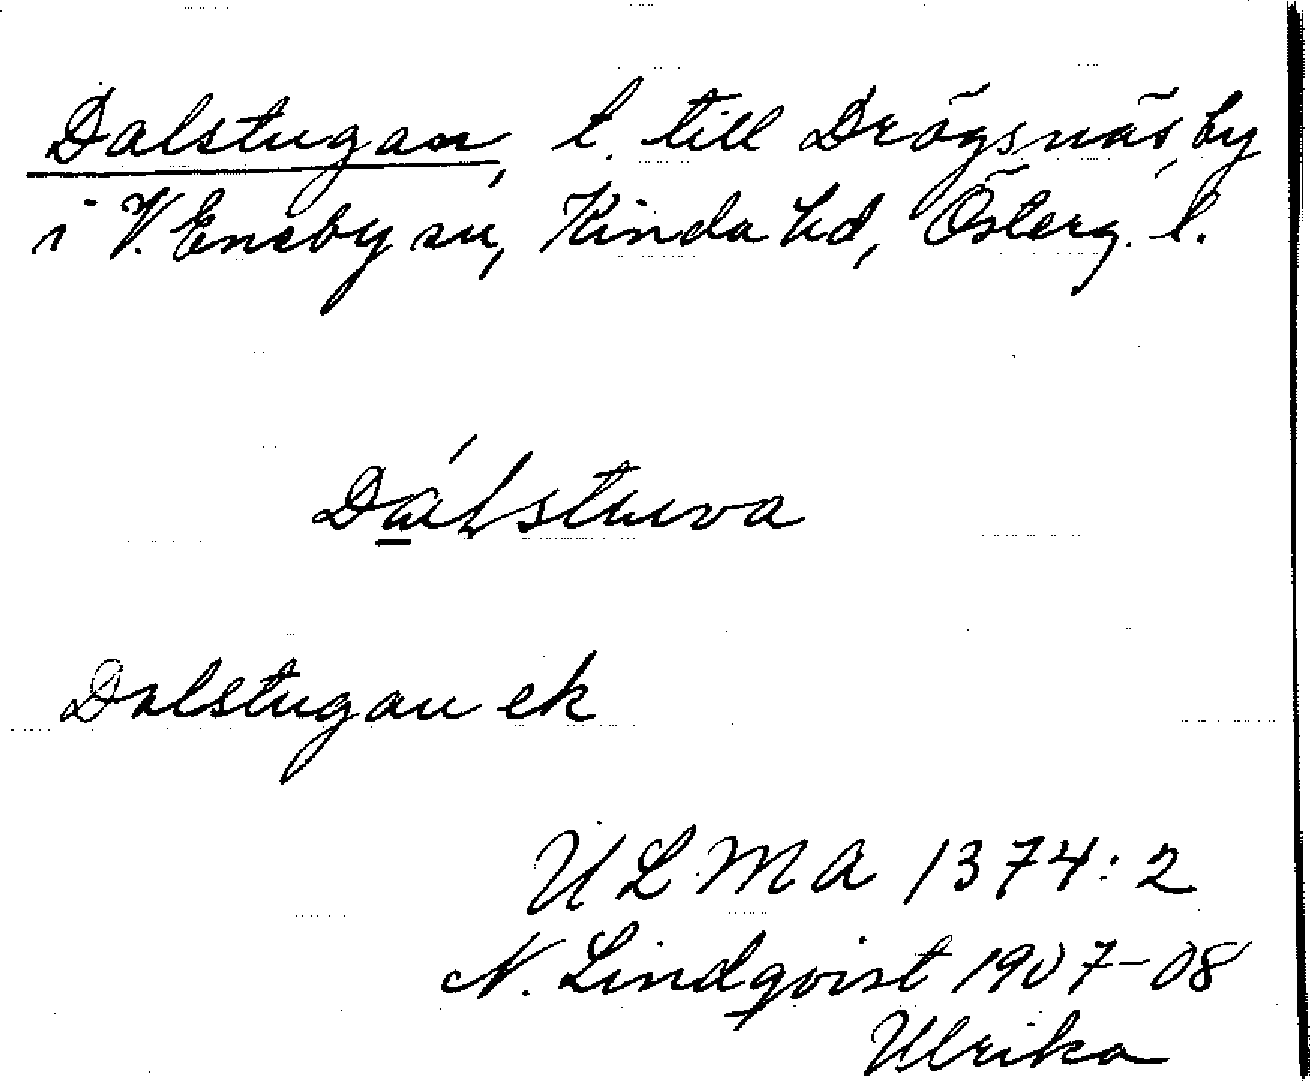 Dalstugan, t. till Drögsnäs, by
i V. Eneby sn, Kinda hd, Österg. l.
Dálstuva
Dalstugan ek
ULMA 1374:2
N. Lindqvist 1907-08
Ulrika